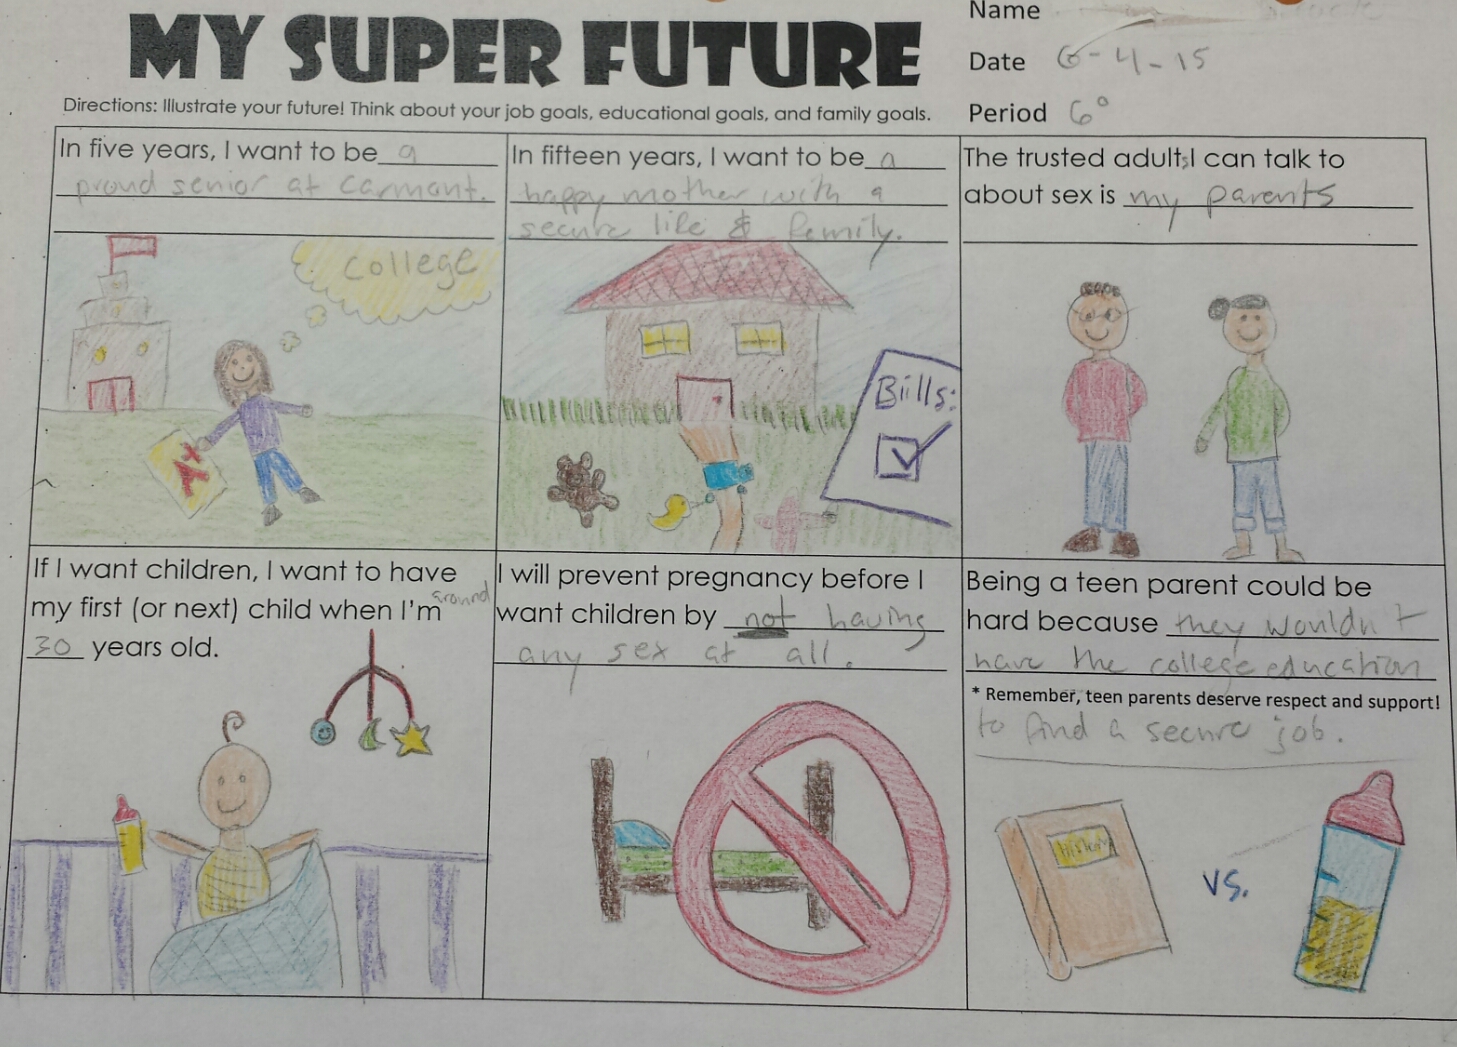 MY SUPER FUTURE
Name
Date 6-4-15
Period 6°
Directions: Illustrate your future! Think about your job goals, educational goals, and family goals.
In five years, I want to be a
proud senior at Carmont.
college
In fifteen years, I want to be a
happy mother with a
secure life & family.
Bills:
The trusted adults I can talk to
about sex is my parents
If I want children, I want to have
my first (or next) child when I'm around
30 years old.
I will prevent pregnancy before I
want children by not having
any sex at all.
Being a teen parent could be
hard because they wouldn't
have the college education
* Remember, teen parents deserve respect and support!
to find a secure job.
History
vs.